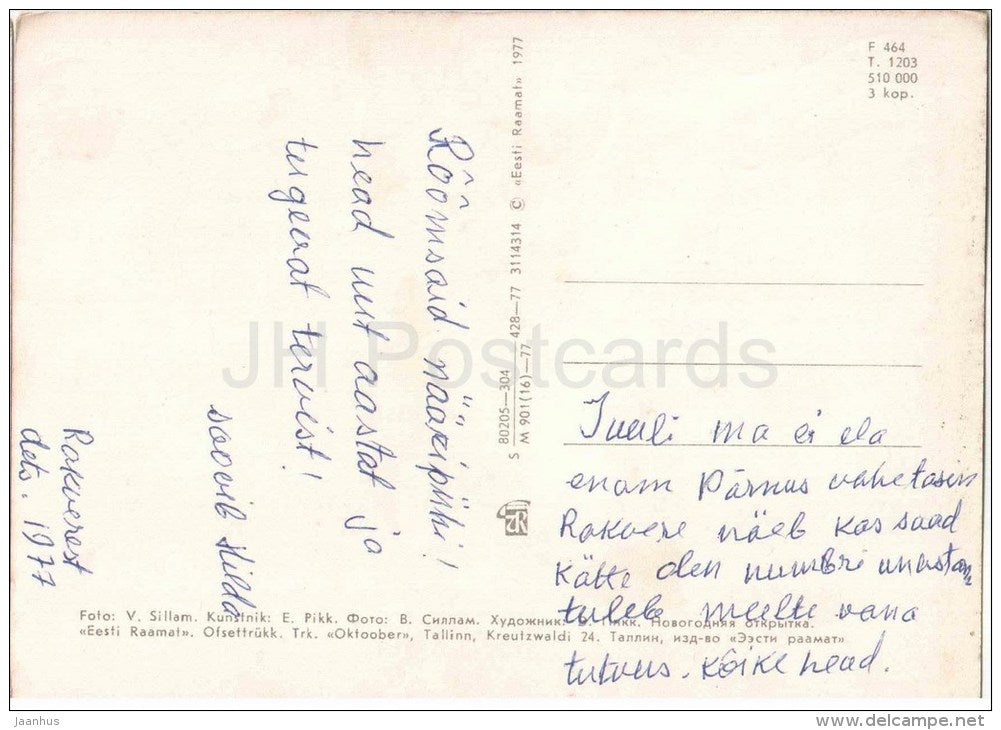 Rõõmsaid nääripühi!
head uut aastat ja
tugevat tervist!
soovib Hilda
Rakverest
dets. 1977
S 80205—304 428—77 3114314 © «Eesti Raamat» 1977
M 901(16)—77
F 464
T. 1203
510 000
3 kop.
Juuli ma ei ela
enam Pärnus vahetasin
Rakvere näeb kas saad
kätte olen numbri unustan,
tuleb meelte vana
tutvus. Kõike head.
Foto: V. Sillam. Kunstnik: E. Pikk. Фото: В. Силлам. Художник: Э. Пикк. Новогодняя открытка.
«Eesti Raamat». Ofsettrükk. Trk. «Oktoober», Tallinn, Kreutzwaldi 24. Таллин, изд-во «Ээсти раамат»
JH Postcards
jaanhus
www.delcampe.net